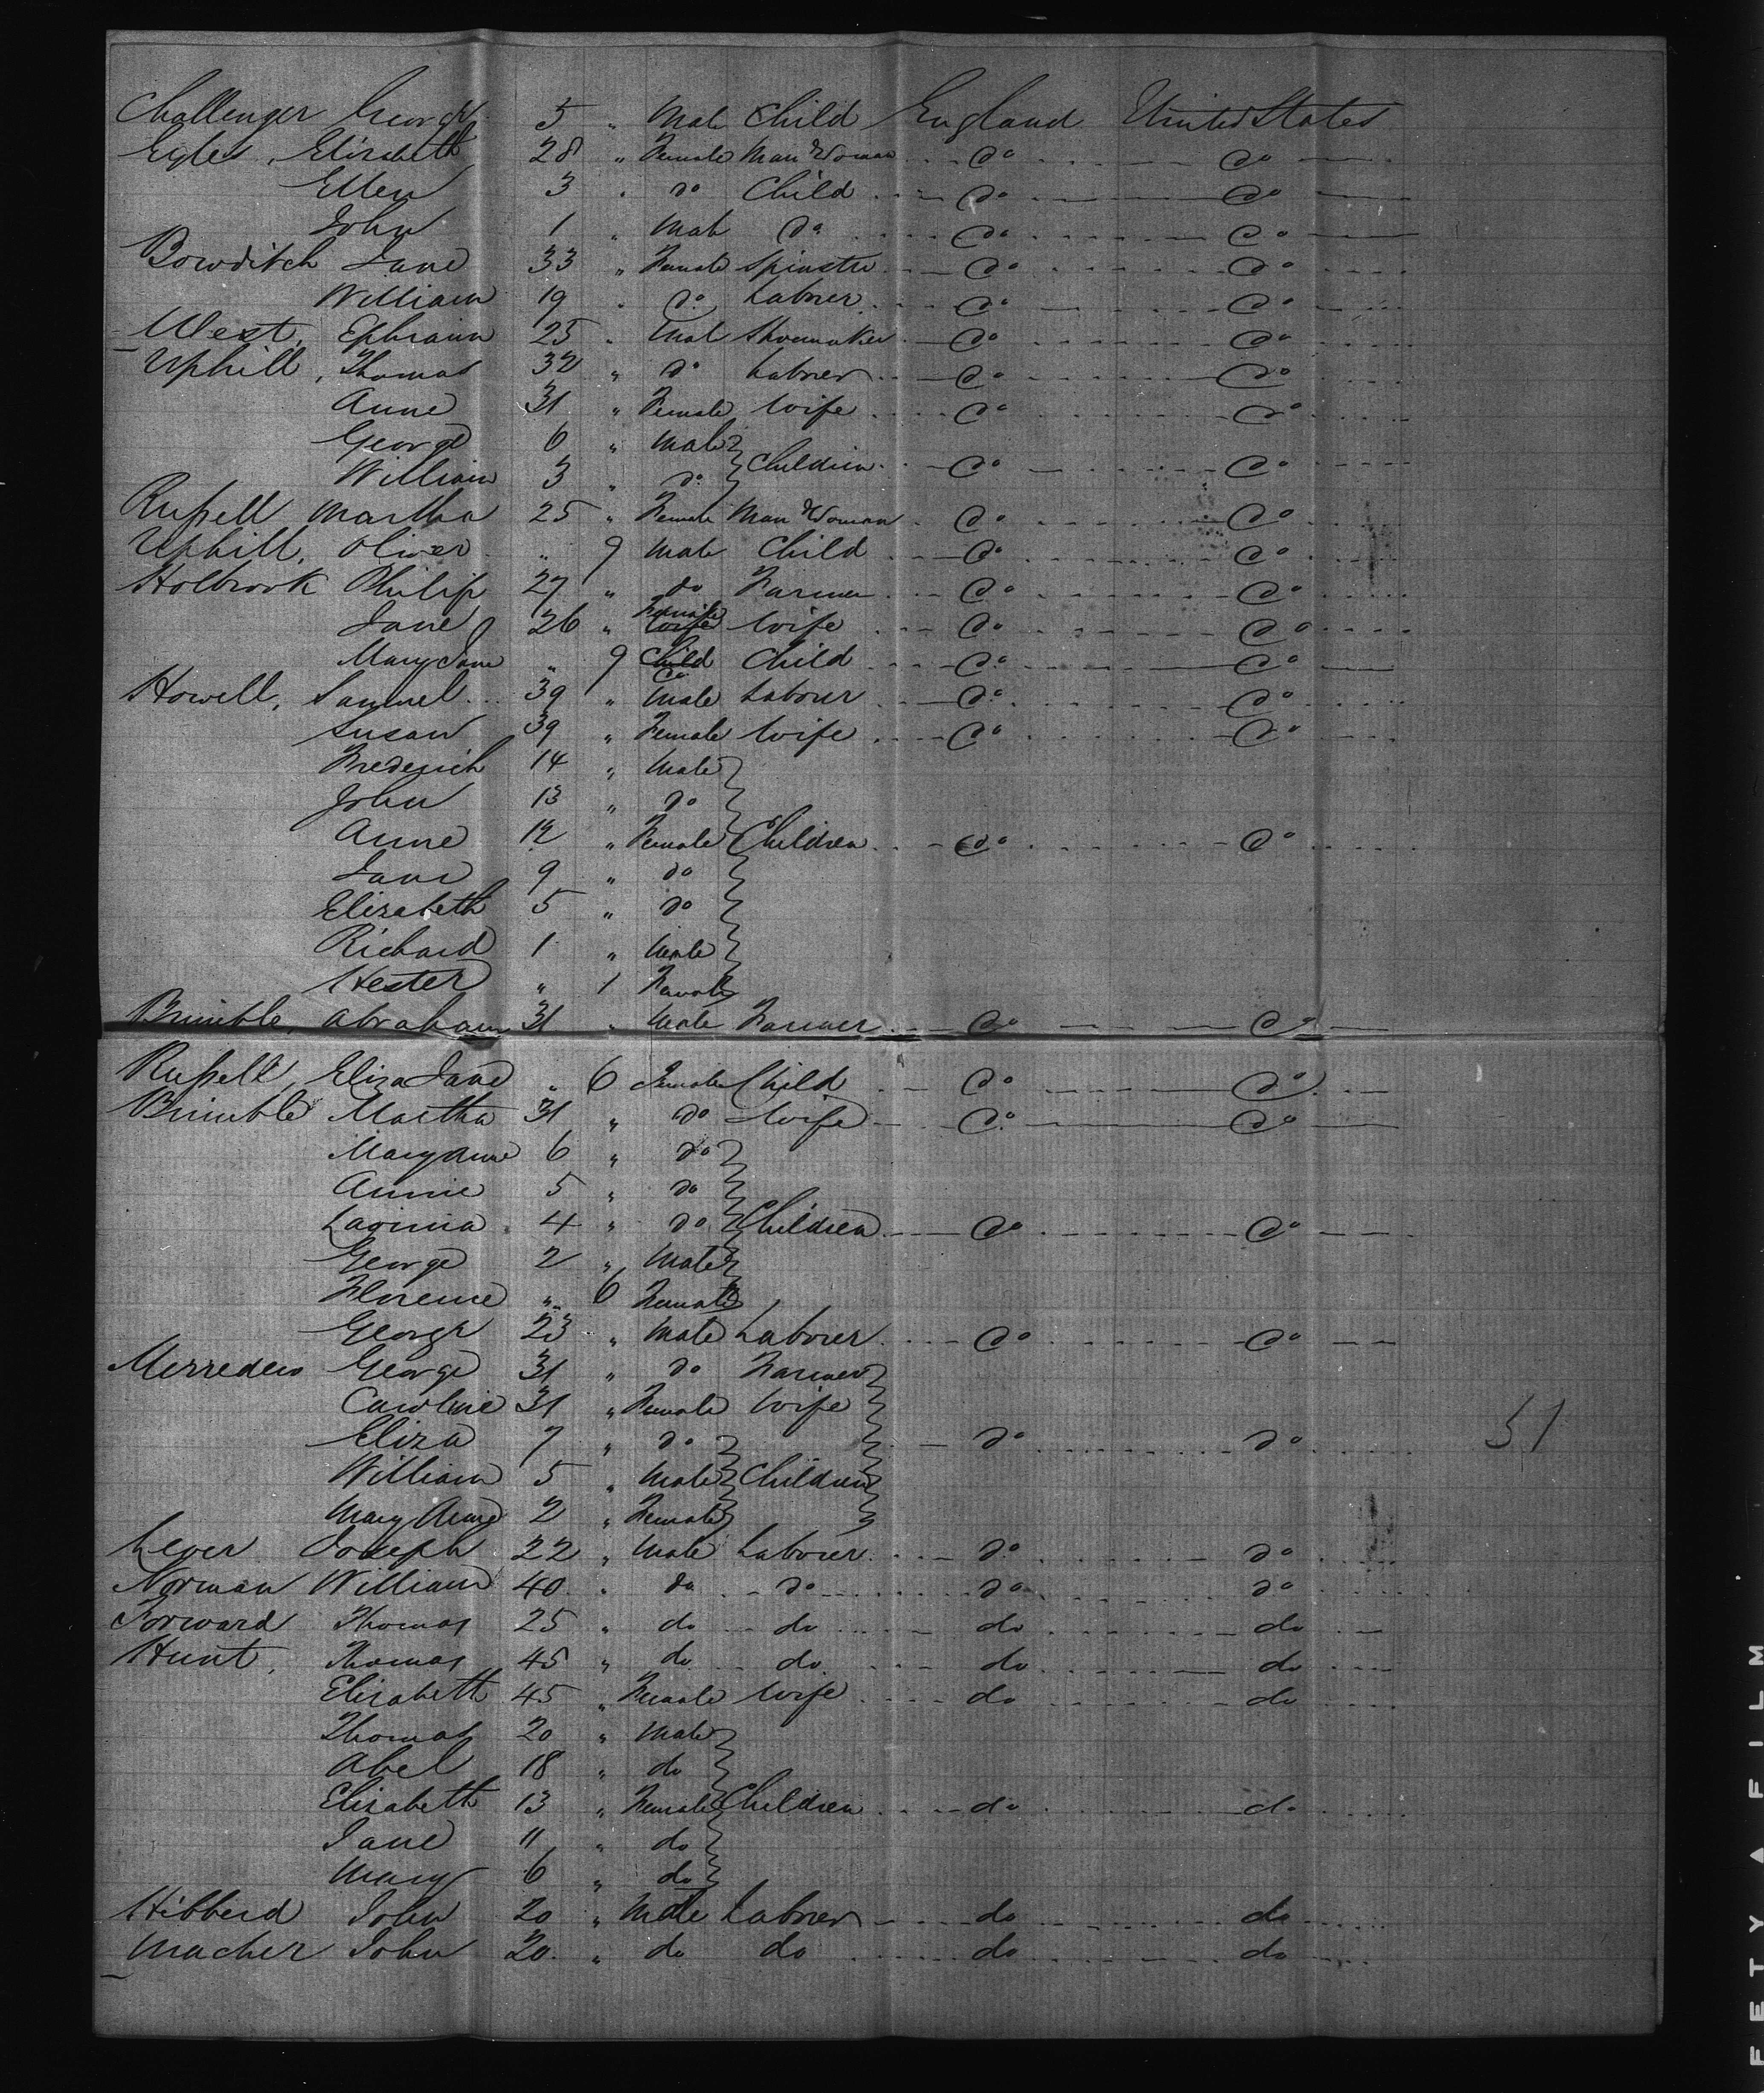 Challenger George 5 " Male Child England United States
Eyles, Elizabeth 28 " Female Marr Woman do do
Ellen 3 " do Child do do
John 1 " Male do do do
Bowditch Jane 33 " Female Spinster do do
William 19 " do Labrer do do
West, Ephraim 25 " Male Shoemaker do do
Uphill, Thomas 32 " do Labrer do do
Anne 31 " Female Wife do do
George 6 " Male
William 3 " do } Children do do
Rußell Martha 25 " Female Marr Woman do do
Uphill, Oliver " 9 Male Child do do
Holbrook Philip 27 " do Farmer do do
Jane 26 " Female Wife do do
Mary Jane " 9 Child do Child do do
Howell, Samuel 39 " Male Labour do do
Susan 39 " Female Wife do do
Frederick 14 " Male
John 13 " do
Anne 12 " Female Children do do
Jane 9 " do
Elizabeth 5 " do
Richard 1 " Male
Hester " 1 Female
Brimble, Abraham 31 " Male Farmer do do
Rußell, Eliza Jane " 6 Female Child do do
Brimble Martha 31 " do Wife do do
Mary Anne 6 " do
Annie 5 " do
Lavinia 4 " do Children do do
George 2 " Male
Florence " 6 Female
George 23 " Male Labourer do do
Merredew George 31 " do Farmer
Caroline 31 " Female Wife
Eliza 7 " do do do 51
William 5 " Male Children
Mary Anne 2 " Female
Lever Joseph 22 " Male Labourer do do
Norman William 40 " do do do do
Forward Thomas 25 " do do do do
Hunt, Thomas 45 " do do do do
Elizabeth 45 " Female Wife do do
Thomas 20 " Male
Abel 18 " do
Elizabeth 13 " Female Children do do
Jane 11 " do
Mary 6 " do
Hibberd John 20 " Male Labrer do do
Macher John 20 " do do do do
FETY ▲ FILM